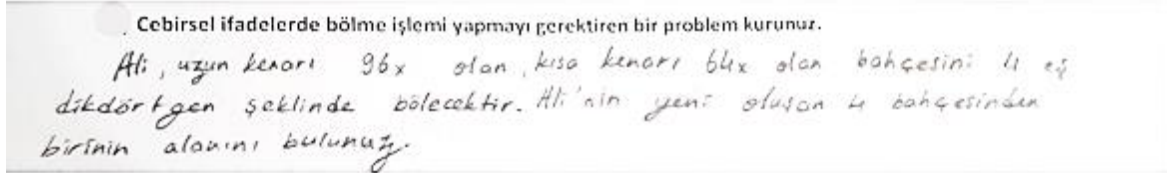 Cebirsel ifadelerde bölme işlemi yapmayı gerektiren bir problem kurunuz.
Ali, uzun kenarı 96x olan, kısa kenarı 64x olan bahçesini 4 eş
dikdörtgen şeklinde bölecektir. Ali'nin yeni oluşan 4 bahçesinden
birinin alanını bulunuz.